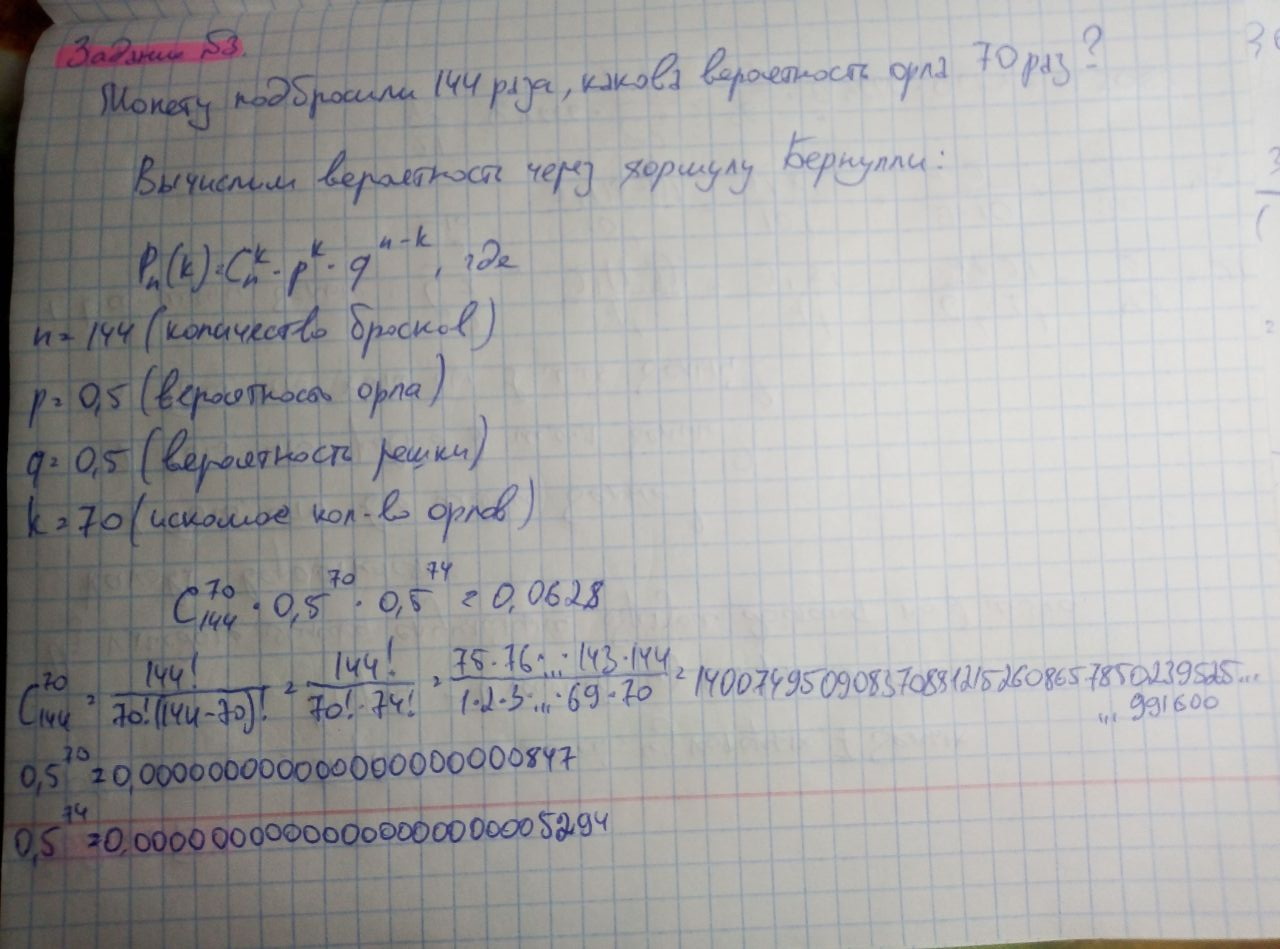 Задание №3.
Монету подбросили 144 раза, какова вероятность орла 70 раз?
Вычислим вероятность через формулу Бернулли:
Pₙ(k)=Cₙᵏ · pᵏ · qⁿ⁻ᵏ, где
n = 144 (количество бросков)
p = 0,5 (вероятность орла)
q = 0,5 (вероятность решки)
k = 70 (искомое кол-во орлов)
C₁₄₄⁷⁰ · 0,5⁷⁰ · 0,5⁷⁴ = 0,0628
C₁₄₄⁷⁰ = 144! / 70!·(144-70)! = 144! / 70!·74! = 75·76·...·143·144 / 1·2·3·...·69·70 = 1400749509083708812152608657850239525...
...991600
0,5⁷⁰ = 0,000000000000000000000847
0,5⁷⁴ = 0,00000000000000000000005294